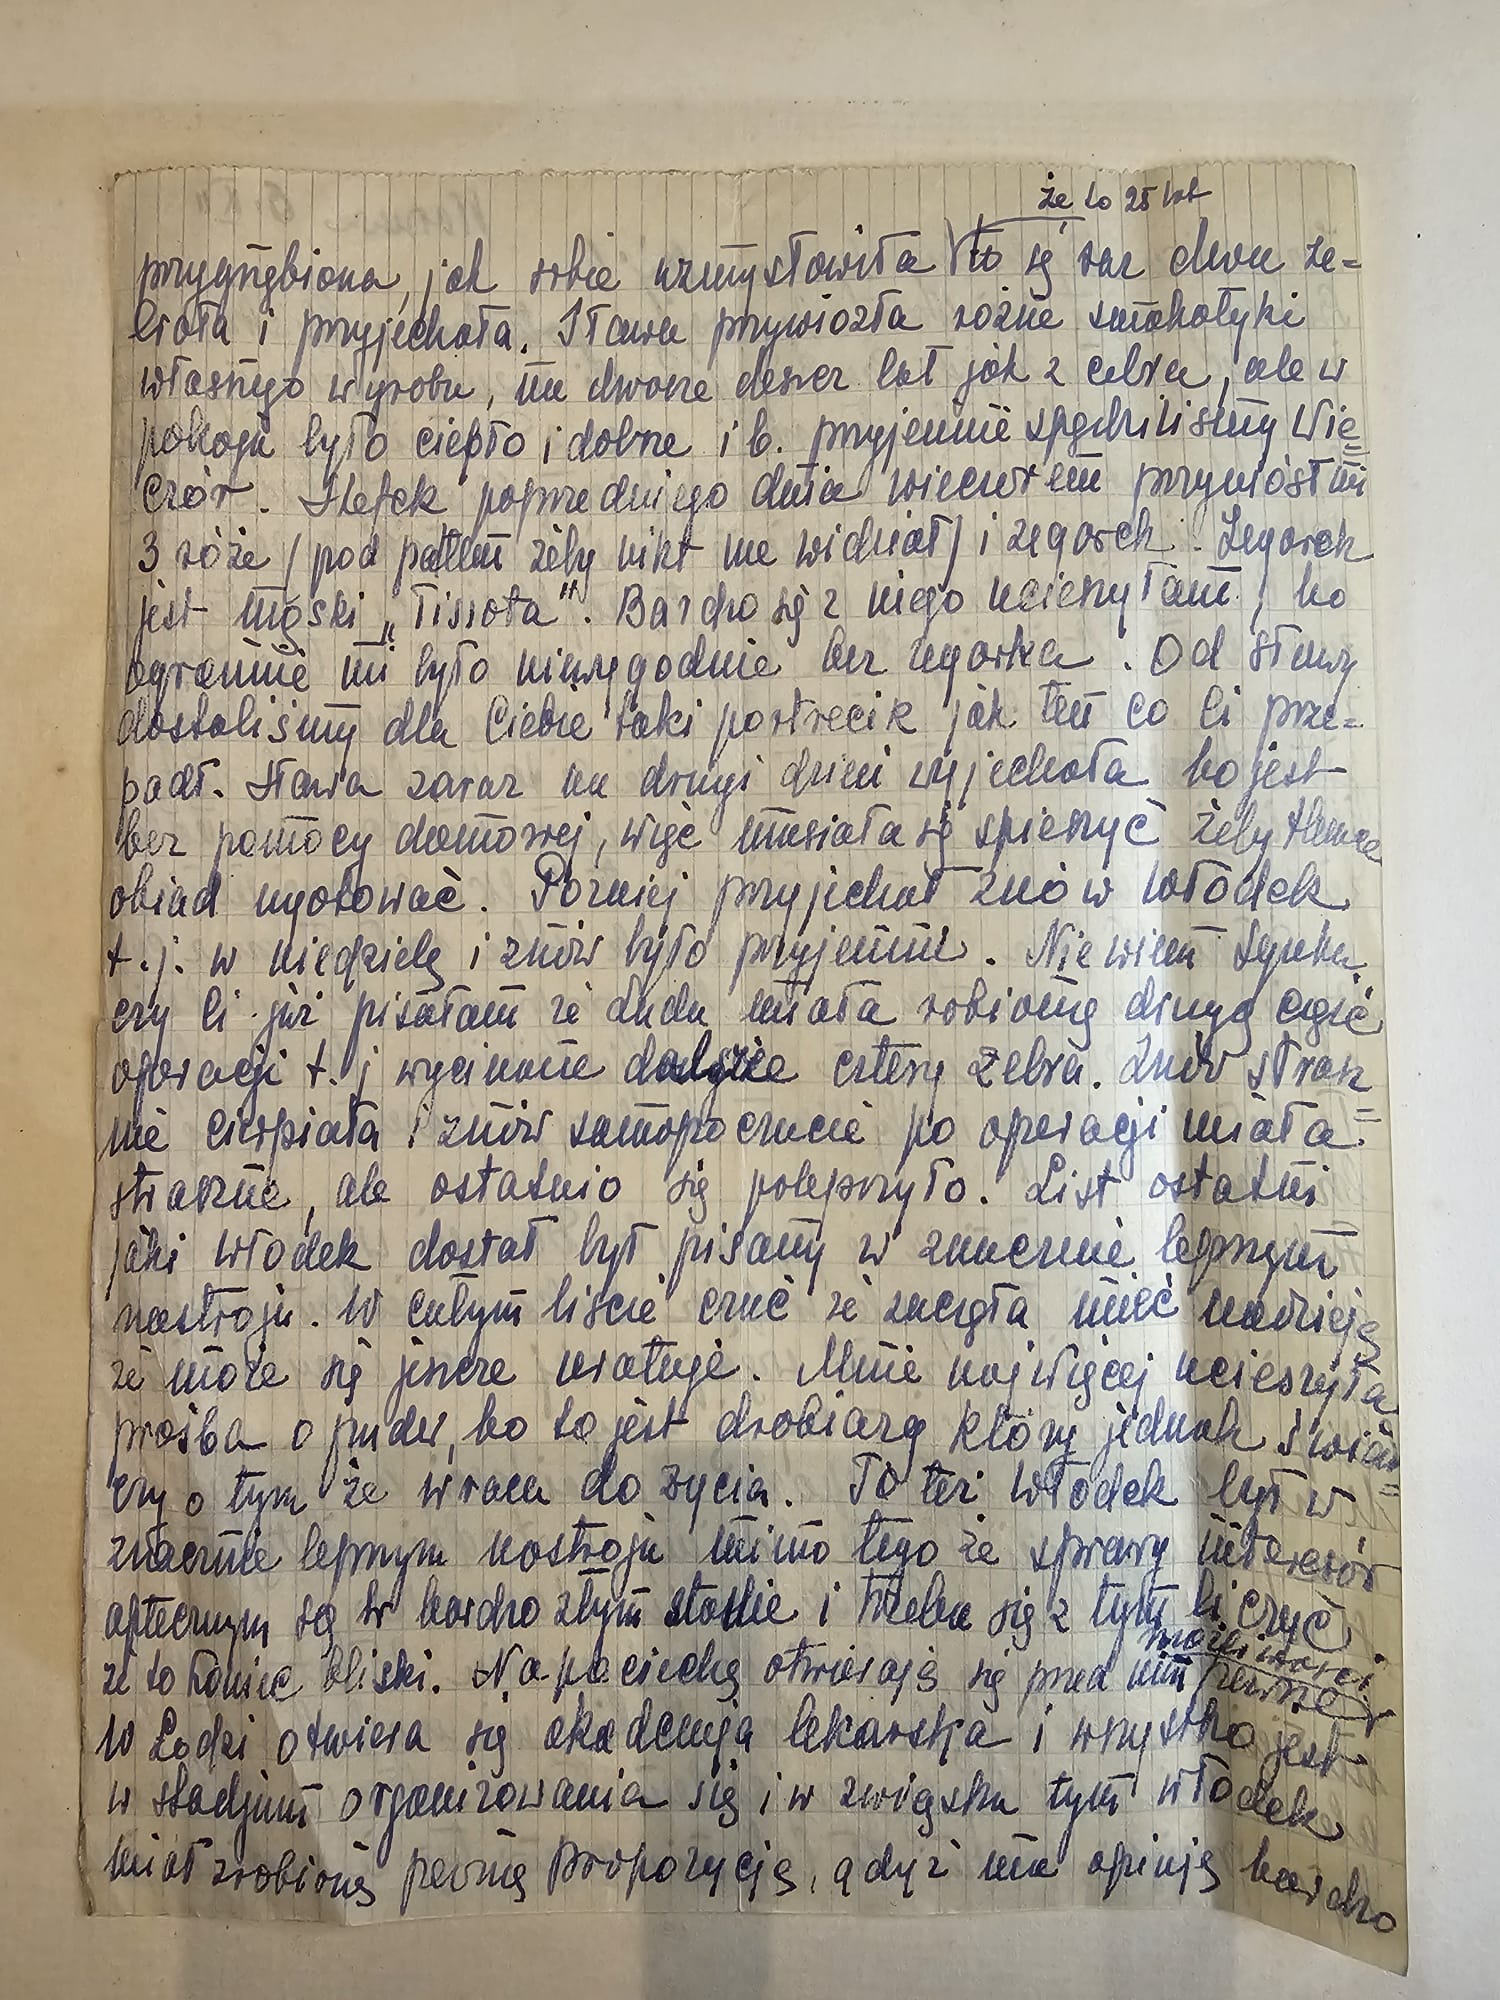 że to 25 lat
przygnębiona, jak sobie uzmysłowiła to się raz dwu ze=
brała i przyjechała. Sława przywiozła różne smakołyki
własnego wyrobu, na dworze deszcz lał jak z cebra, ale w
pokoju było ciepło i dobrze i b. przyjemnie spędziliśmy wie=
czór. Stefek poprzedniego dnia wieczorem przyniósł mi
3 róże / pod paltem żeby nikt nie widział / i zegarek. Zegarek
jest męski „Tissota". Bardzo się z niego ucieszyłam, bo
ogromnie mi było niewygodnie bez zegarka. Od Sławy
dostaliśmy dla Ciebie taki portrecik jak ten co Ci prze=
padł. Sława zaraz na drugi dzień wyjechała bo jest
bez pomocy domowej, więc musiała się spieszyć żeby
obiad ugotować. Pózniej przyjechał znów Włodek
t.j. w niedzielę i znów było przyjemnie. Nie wiem synku
czy Ci już pisałam że Duda miała robioną drugą część
operacji t.j wycinane dalsze cztery żebra. Znów strasz=
nie cierpiała i znów samopoczucie po operacji miała
straszne, ale ostatnio się polepszyło. List ostatni
jaki Włodek dostał był pisany w znacznie lepszym
nastroju. W całym liście czuć że zaczęła mieć nadzieję
że może się jeszcze uratuje. Mnie najwięcej ucieszyła
prośba o puder, bo to jest drobiazg który jednak świad=
czy o tym że wraca do życia. To też Włodek był w
znacznie lepszym nastroju mimo tego że sprawy interesów
aptecznym są w bardzo złym stanie i trzeba się z tym liczyć
że to koniec bliski. Na pociechę otwierają się przed nim pewne
możliwości
W Łodzi otwiera się akademja lekarska i wszystko jest
w stadjum organizowania się i w związku tym Włodek
miał zrobioną pewną propozycję, gdyż ma opinję bardzo